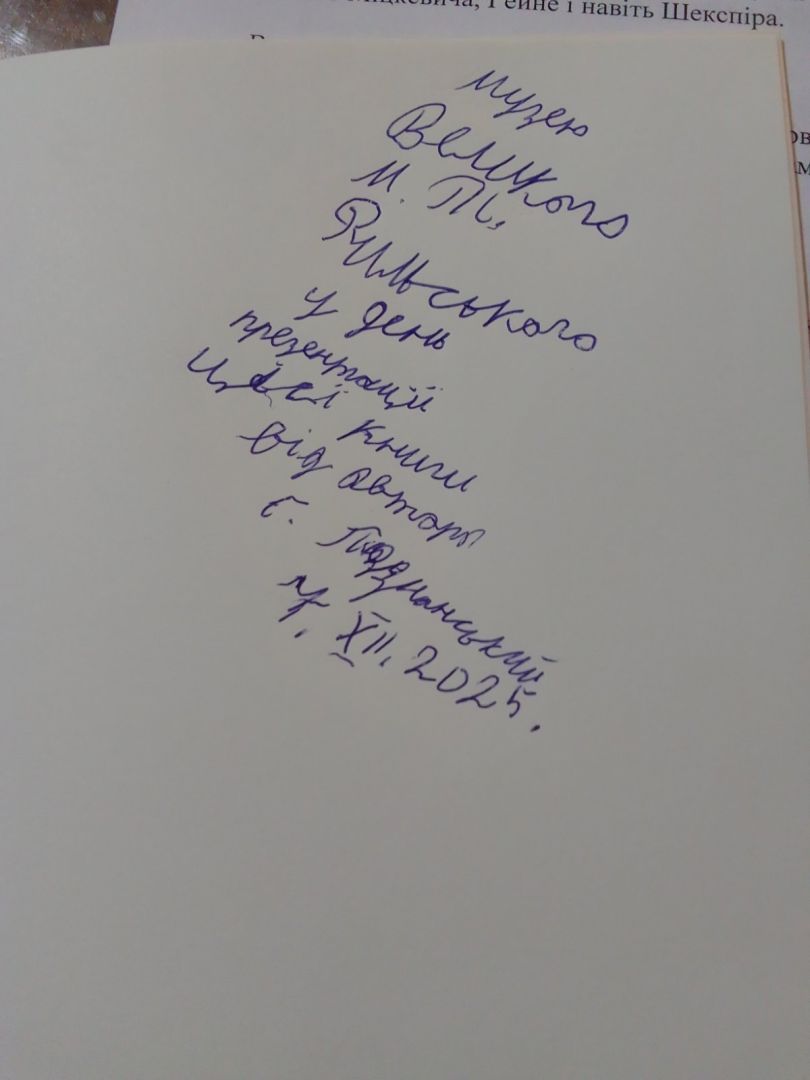 Міцкевича, Гейне і навіть Шекспіра.
музею
Великого
М. Т.
Рильського
у день
презентації
цієї книги
від автора
Познанський
XII. 2025.